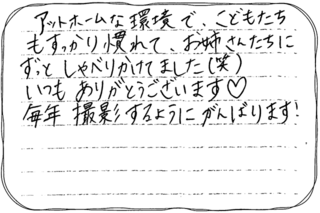 アットホームな環境で、こどもたち
もすっかり慣れて、お姉さんたちに
ずっとしゃべりかけてました(笑)
いつもありがとうございます♡
毎年撮影するようにがんばります!